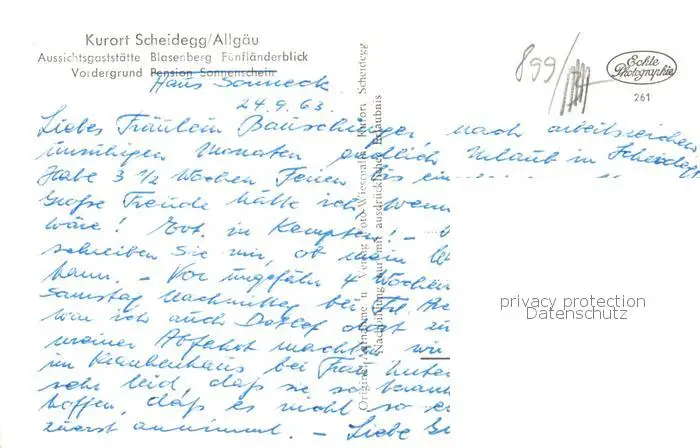 Kurort Scheidegg/Allgäu
Aussichtsgaststätte Blasenberg Fünfländerblick
Vordergrund Pension Sonnenschein
Haus Sonneck
899/
Echte Photographie
261
24.9.63.
Liebes Fräulein nach arbeitsreichen
unruhigen Monaten endlich Urlaub in Scheidegg
Habe 3 1/2 Wochen Ferien bis ein
Große Freude hätte ich, wenn
wäre! Evt. in Kempten! –
schreiben Sie mir, ob mein
kann. – Vor ungefähr 4 Wochen
Samstag Nachmittag bei Frl.
war ich auch Detlef dort zu
meiner Abfahrt machten wir
im Krankenhaus bei Frau
sehr leid, daß sie so krank
hoffen, daß es nicht so
zuerst annimmt. – Liebe
Original-Aufnahme u. Verlag Foto-Wiesmahr Kurort Scheidegg
Nachbildung nur mit ausdrücklicher Erlaubnis
privacy protection
Datenschutz